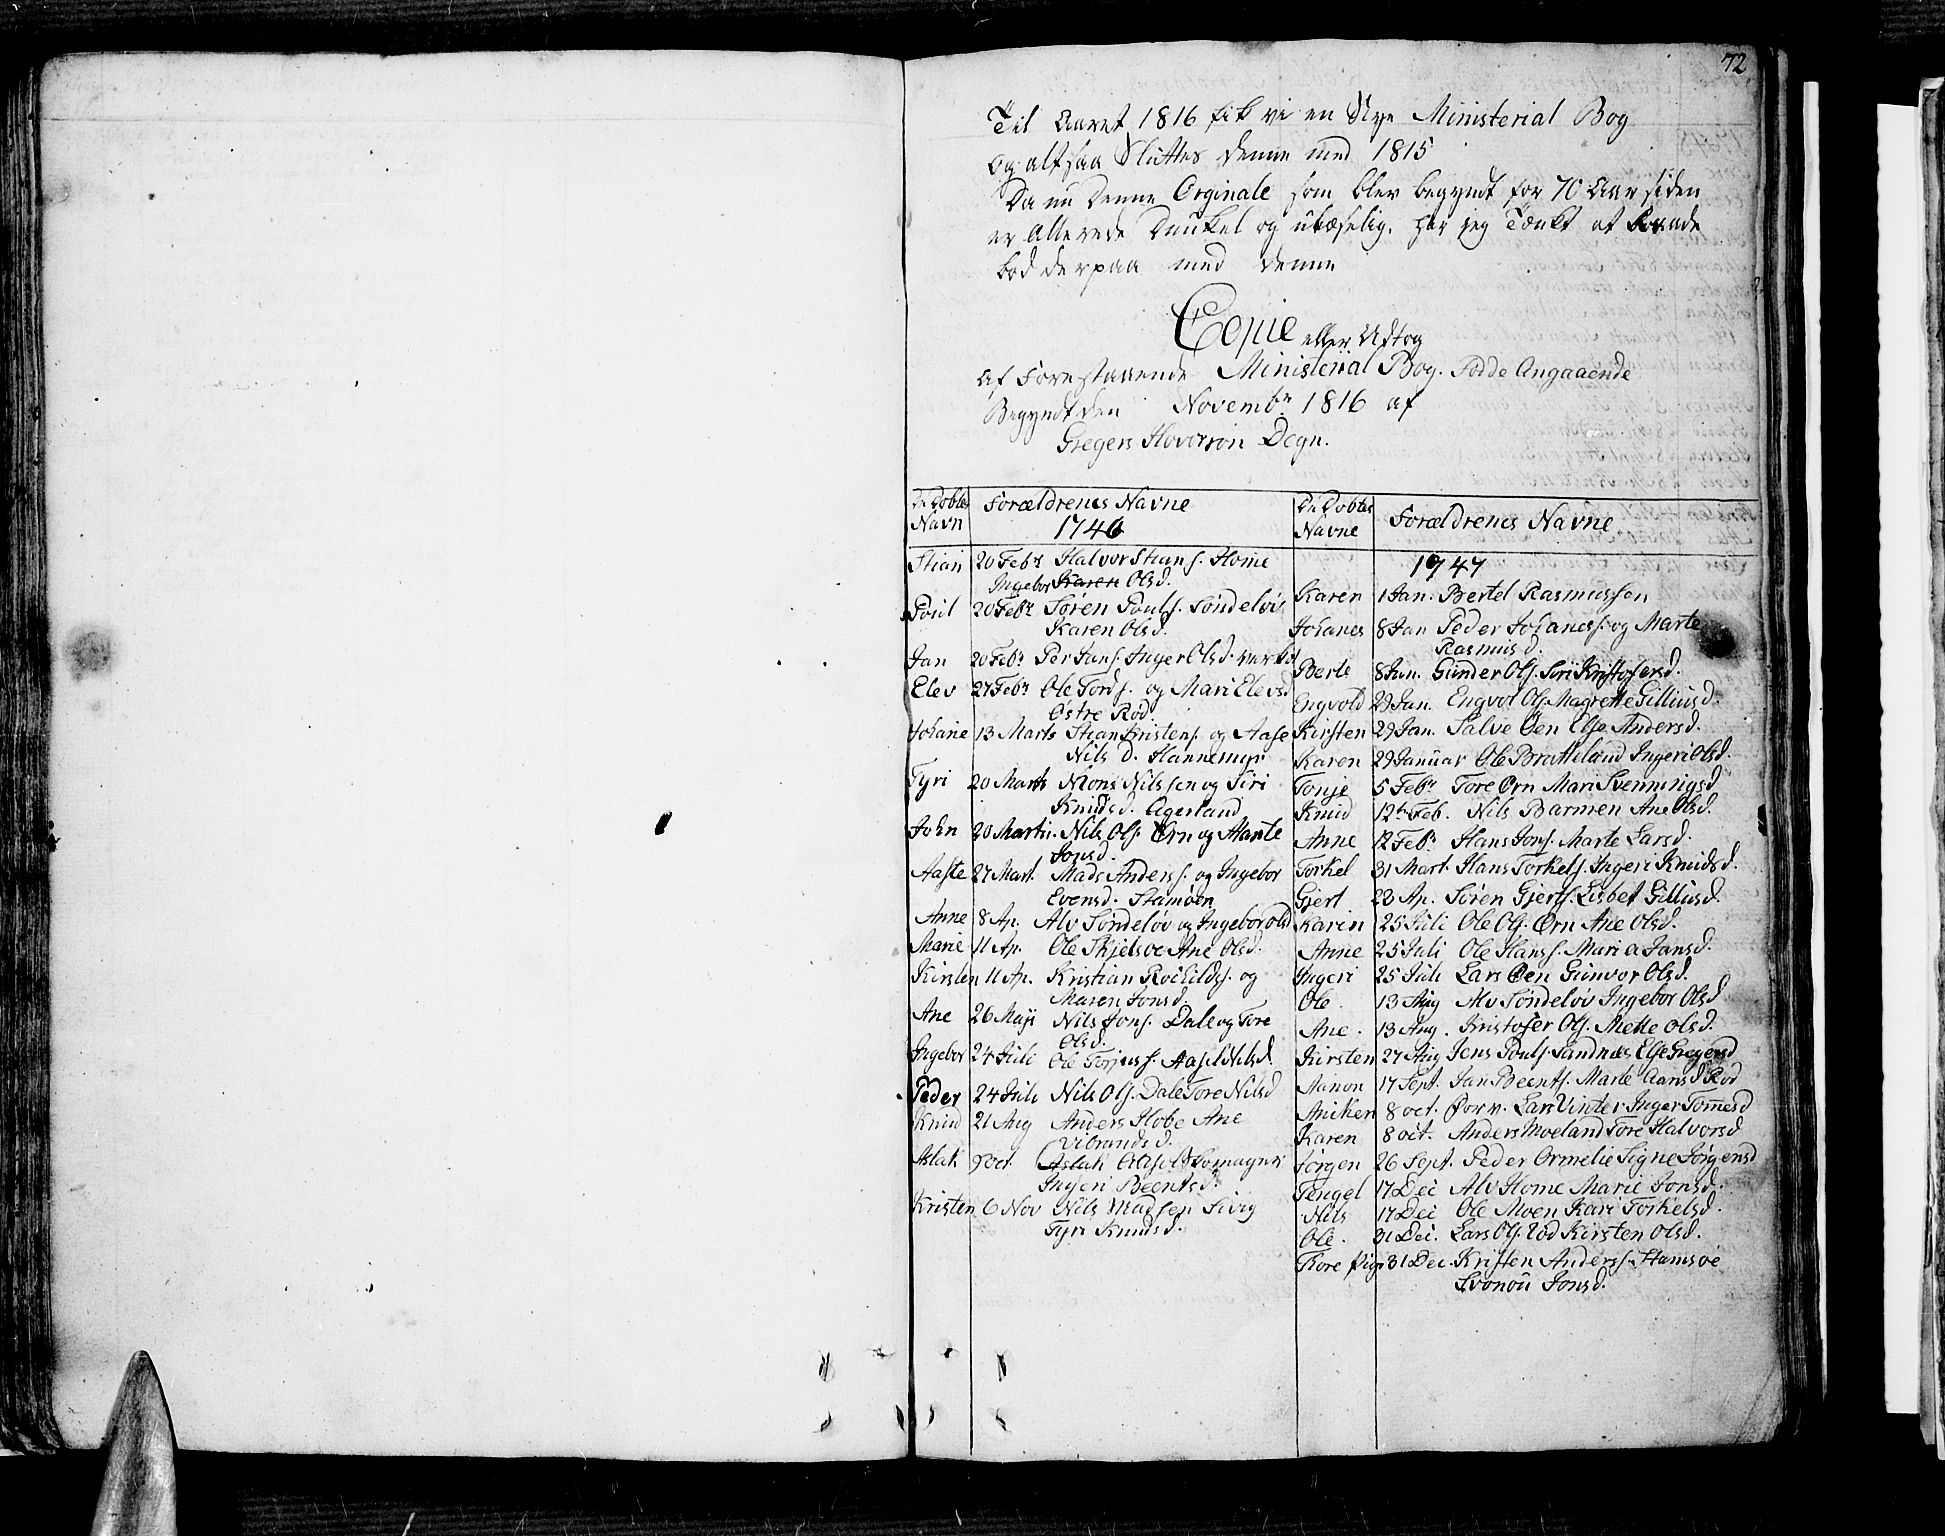 72
Til Aaret 1816 fik vi en Nye Ministerial Bog
og altsaa Sluttes denne med 1815
Da nu denne Orginale som blev begyndt for 70 Aar siden
er Allerede Dunkel og ulæselig, har jeg Tænkt at Raade
bod derpaa med denne
Copie eller Udtog
af Forestaaende Ministerial Bog. Fødde Angaaende
Begyndt den Novembr 1816 af
Gregers Hovorson Degn.
De Døbtes Forældrenes Navne
Navn 1746
Stian 20 Febr Halvor Stians. Home
Ingebor Karen Olsd.
Poul 20 Febr Søren Pouls. Søndeløv
Karen Olsd.
Jan 20 Febr Per Jans. Inger Olsd.
Elev 27 Febr Ole Tords. og Mari Elevsd
Østre Rød
Johane 13 Marts Stian Kristens. og Aase
Nils D. Hannemyr
Tyri 20 Marts Mons Nilssen og Siri
Knudsd. Agerland
John 20 Martii. Nils Ols. Ørn og Marte
Jonsd.
Aaste 27 Mart. Mads Anders s. og Ingebor
Evensd. Stamsøen
Anne 8 Ap. Alv Søndeløv og Ingebor Olsd
Marie 11 Ap. Ole Skjelsøe Ane Olsd.
Kirsten 11 Ap. Kristian Roekilds. og
Maren Jonsd.
Ane 26 Maji Nils Jons. Dale og Tore
Olsd.
Ingebor 24 Juli Ole Torjuss. Aasel Nilsd.
Peder 24 Juli Nils Ols. Dale Tore Nilsd
Knud 21 Aug Anders Hobe Ane
Vibrandsd.
Aslak 9 oct. Aslak
Ingeri Beentsd.
Kristen 6 Nov Nils Madsen Sivig
Tyri Knudsd.
De Døbtes Forældrenes Navne
Navne
1747
Karen 1 Jan. Bertel Rasmussen
Johanes 8 Jan Peder Johaness. og Marte
Rasmusd.
Berte 8 Jan. Gunder Ols. Siri Kristofersd.
Engvold 29 Jan. Engvol Ols. Magrette Gilliusd.
Kirsten 29 Jan. Salve Øen Else Andersd.
Karen 29 Januar Ole Bratteland Ingeri Olsd.
Tonje 5 Febr Tore Ørn Mari Svenningsd
Knud 12te Feb. Nils Barmen Ane Olsd.
Anne 12 Febr Hans Jons. Marte Larsd.
Torkel 31 Mart. Hans Torkels. Ingeri Knudsd.
Gjert 23 Ap. Søren Gjerts. Lisbet Gilliusd.
Karin 25 Juli Ole Ols. Ørn Ane Olsd.
Anne 25 Juli Ole Hanss. Maria Jansd.
Ingeri 25 Juli Lars Øen Gunvor Olsd.
Ole 13 Aug Alv Søndeløv Ingebor Olsd
Ane. 13 Aug. Kristofer Ols. Mette Olsd.
Kirsten 27 Aug Jens Pouls. Sandnæs Else Gregersd
Aanon 17 Sept. Jan Beents. Marte Aansd Rød
Aniken 8 oct. Lars Vinter Inger Tomesd
Karen 8 oct. Anders Moeland Tore Halvorsd
Jørgen 26 Sept. Peder Ormelie Signe Jørgensd
Tengel 17 Dec Alv Home Marie Jonsd.
Nils 17 Dec Ole Moen Kari Torkelsd.
Ole. 31 Dec. Lars Ols. Rød Kirsten Olsd.
Tore Pige 31 Dec. Kristen Anderss. Stamsøe
Svonou Jonsd.